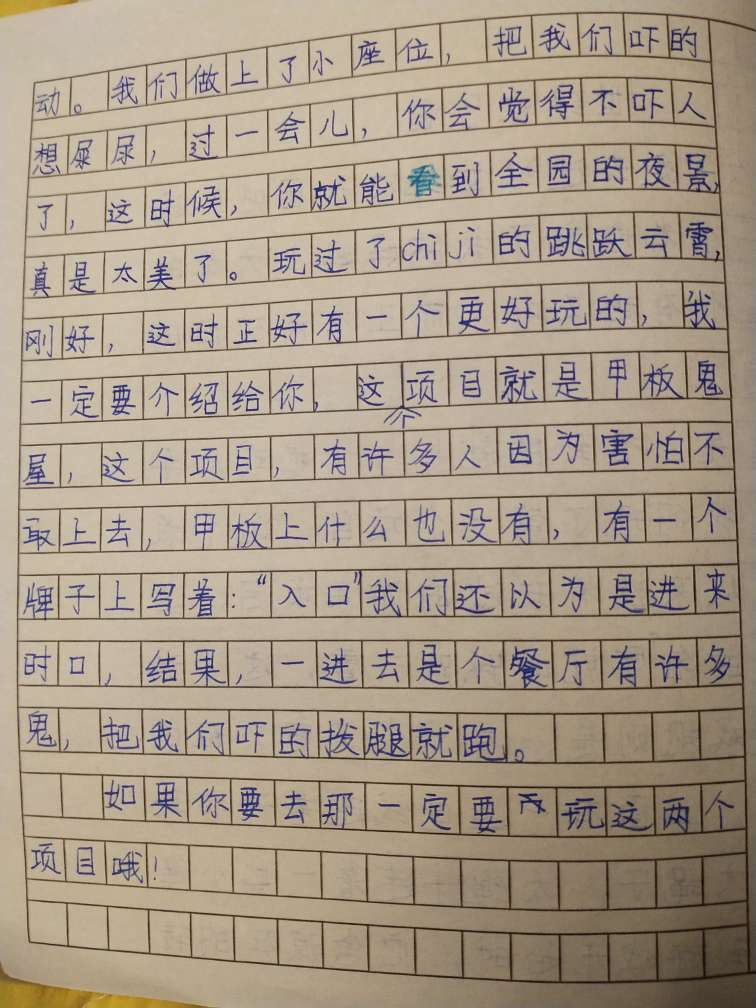 动。我们做上了小座位，把我们吓的
想屎尿，过一会儿，你会觉得不吓人
了，这时候，你就能看到全园的夜景，
真是太美了。玩过了chiji的跳跃云霄，
刚好，这时正好有一个更好玩的，我
一定要介绍给你，这个项目就是甲板鬼
屋，这个项目，有许多人因为害怕不
敢上去，甲板上什么也没有，有一个
牌子上写着：“入口”我们还以为是进来
时口，结果，一进去是个餐厅有许多
鬼，把我们吓的拨腿就跑。
如果你要去那一定要玩这两个
项目哦！